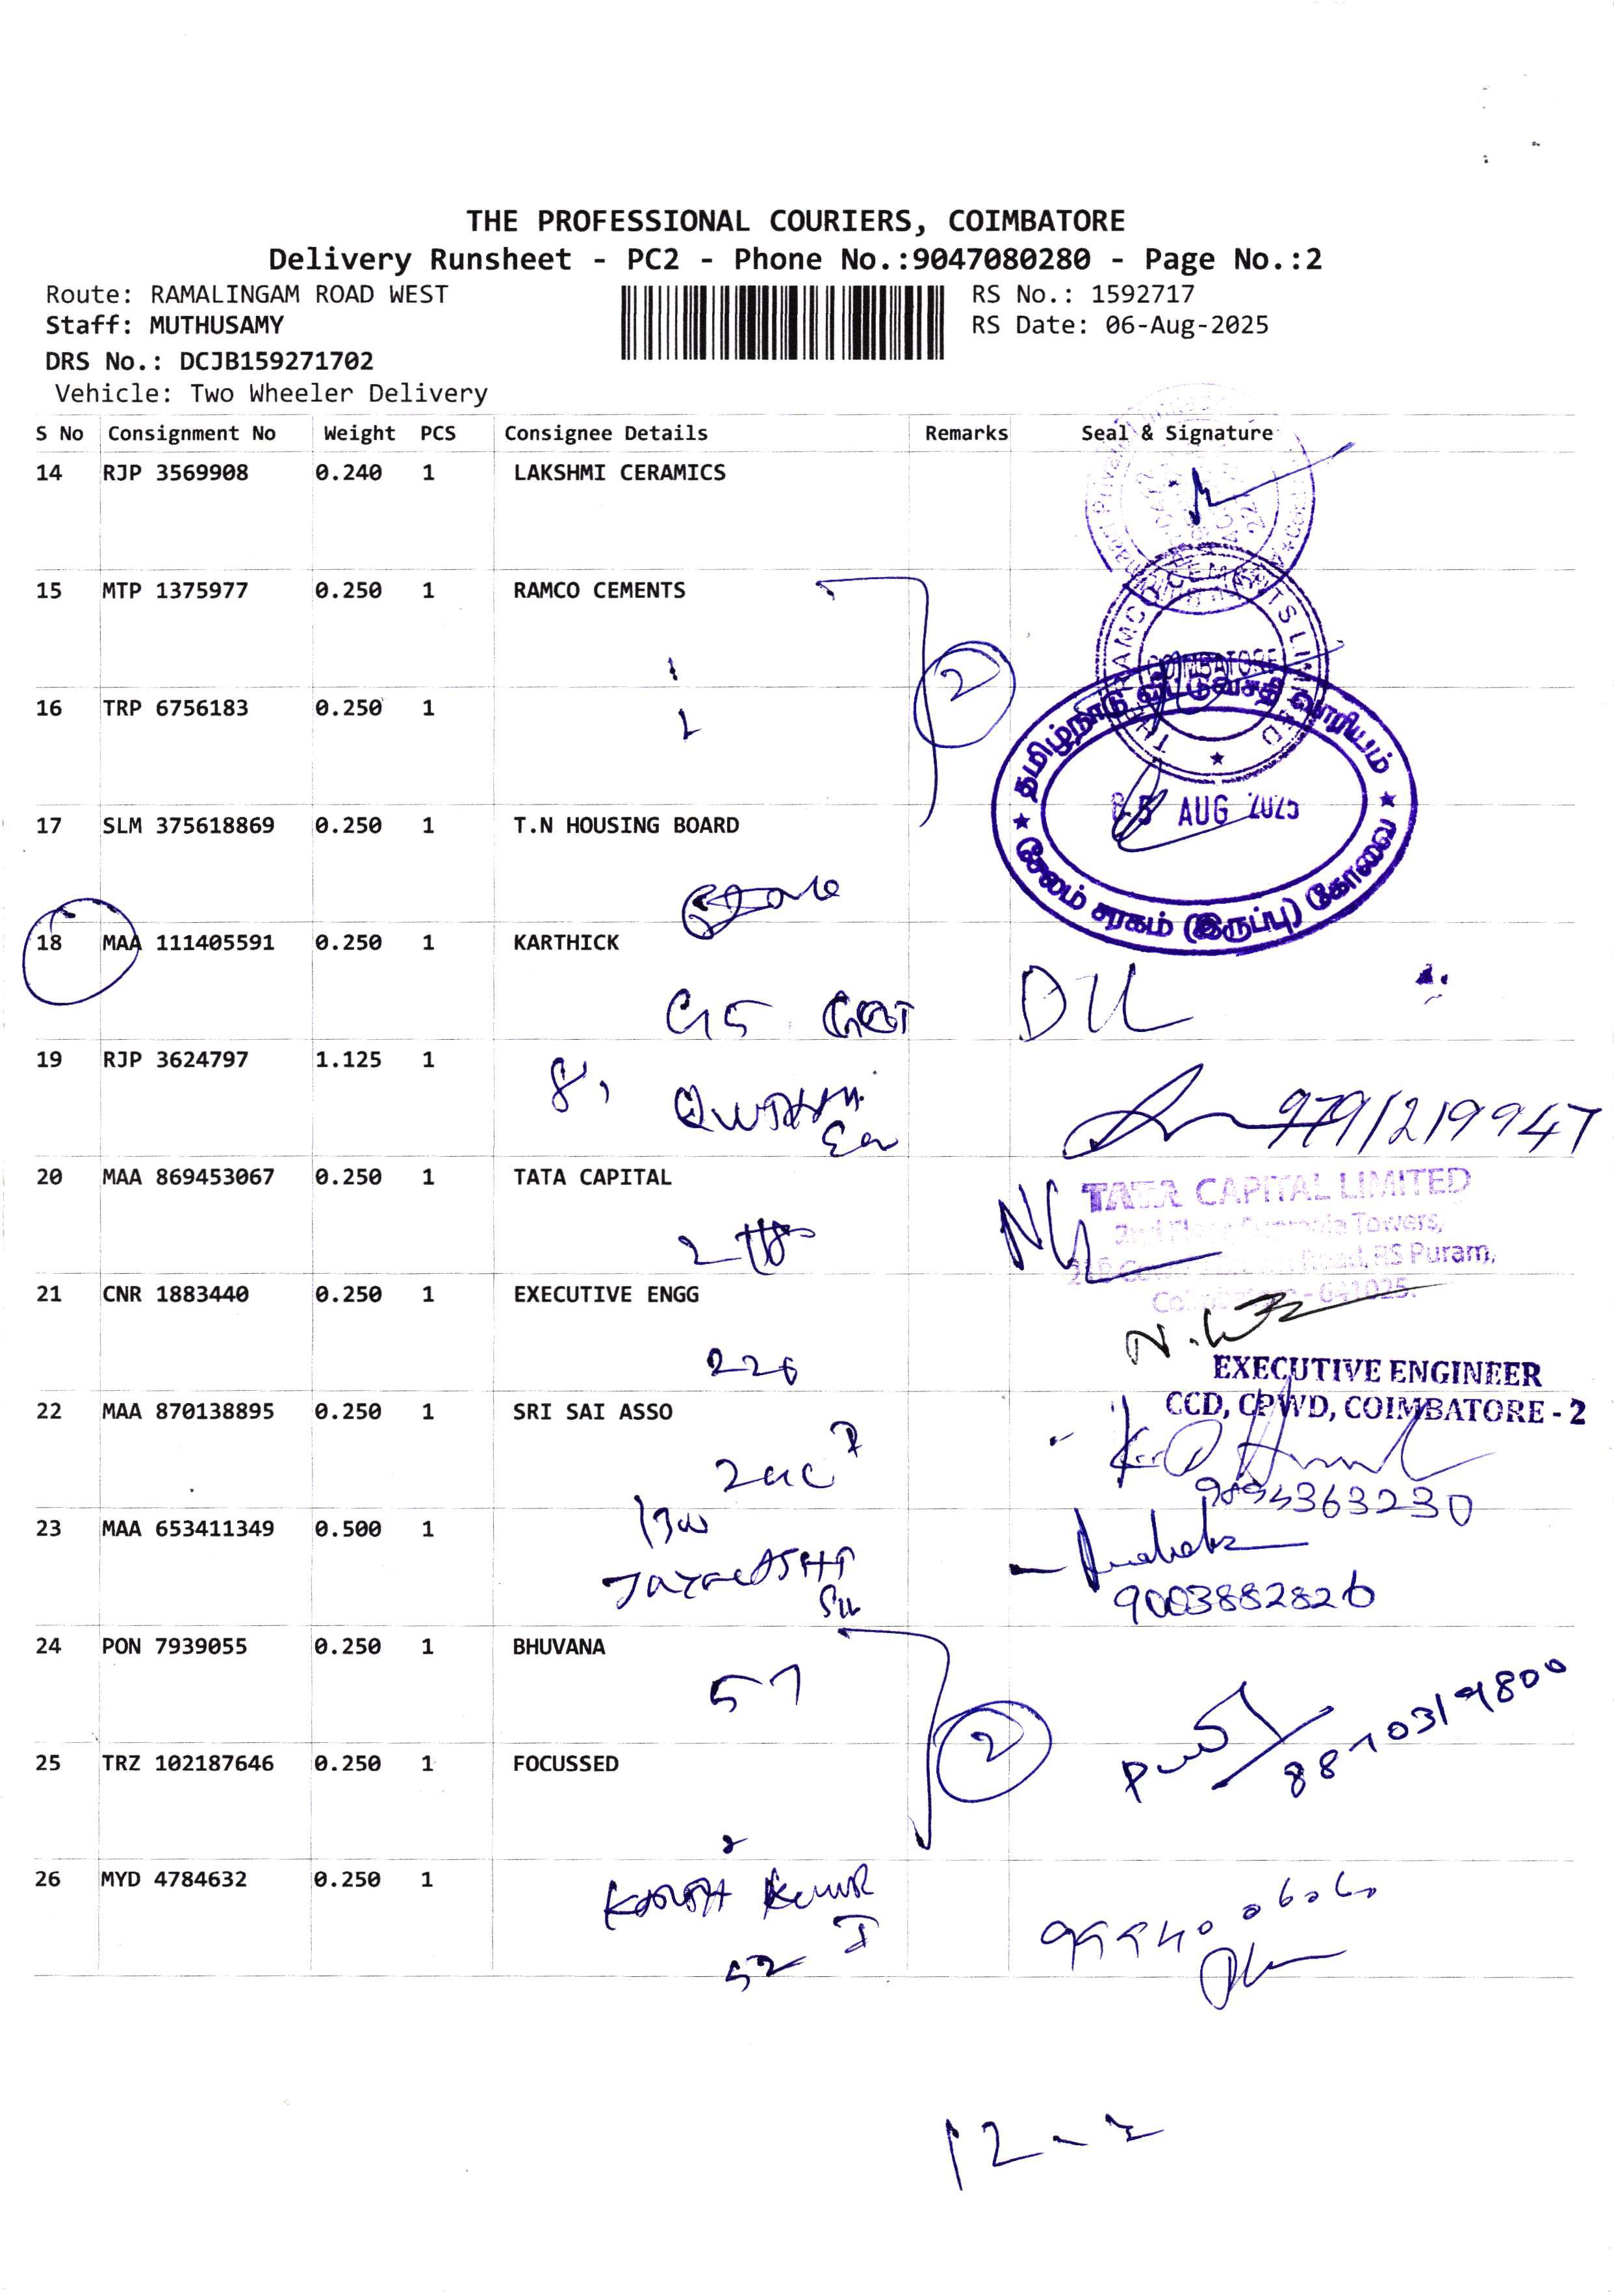 THE PROFESSIONAL COURIERS, COIMBATORE
Delivery Runsheet - PC2 - Phone No.:9047080280 - Page No.:2
Route: RAMALINGAM ROAD WEST
RS No.: 1592717
Staff: MUTHUSAMY
RS Date: 06-Aug-2025
DRS No.: DCJB159271702
Vehicle: Two Wheeler Delivery
S No Consignment No Weight PCS Consignee Details Remarks Seal & Signature
14 RJP 3569908 0.240 1 LAKSHMI CERAMICS
15 MTP 1375977 0.250 1 RAMCO CEMENTS
COIMBATORE
2
16 TRP 6756183 0.250 1
தமிழ்நாடு வீட்டுவசதி வாரியம்
AUG 2025
17 SLM 375618869 0.250 1 T.N HOUSING BOARD
சேலம் சரகம் (இருப்பு) கோவை
18 MAA 111405591 0.250 1 KARTHICK
DLL
19 RJP 3624797 1.125 1
8,
9791219947
20 MAA 869453067 0.250 1 TATA CAPITAL
TATA CAPITAL LIMITED
Towers,
Road, RS Puram,
- 641025.
21 CNR 1883440 0.250 1 EXECUTIVE ENGG
226
EXECUTIVE ENGINEER
CCD, CPWD, COIMBATORE - 2
22 MAA 870138895 0.250 1 SRI SAI ASSO
9894363230
23 MAA 653411349 0.500 1
9003882826
24 PON 7939055 0.250 1 BHUVANA
57
8870319800
2
25 TRZ 102187646 0.250 1 FOCUSSED
26 MYD 4784632 0.250 1
52
12 - 2